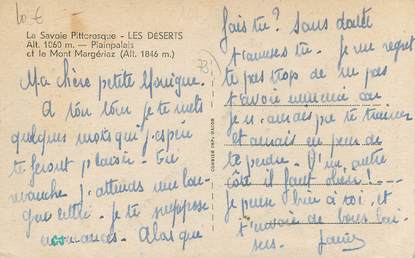 10 €
La Savoie Pittoresque - LES DESERTS
Alt. 1060 m. — Plainpalais
et le Mont Margériaz (Alt. 1846 m.)
(73)
Ma chère petite Monique.
A ton tour je te mets
quelques mots qui j'espère
te feront plaisir. En
revanche j'attends une lon-
gue lettre. Je te suppose
en vacances. Alors que
fais tu ? Sans doute
t'amuses tu. Je me regret
te pas trop de ne pas
t'avoir emmenée car
je n'aurais pu te trainer
et aurais eu peur de
te perdre. D'un autre
côté il faut obéir !
je pense bien à toi, et
t'envoie de bons bai
sers.